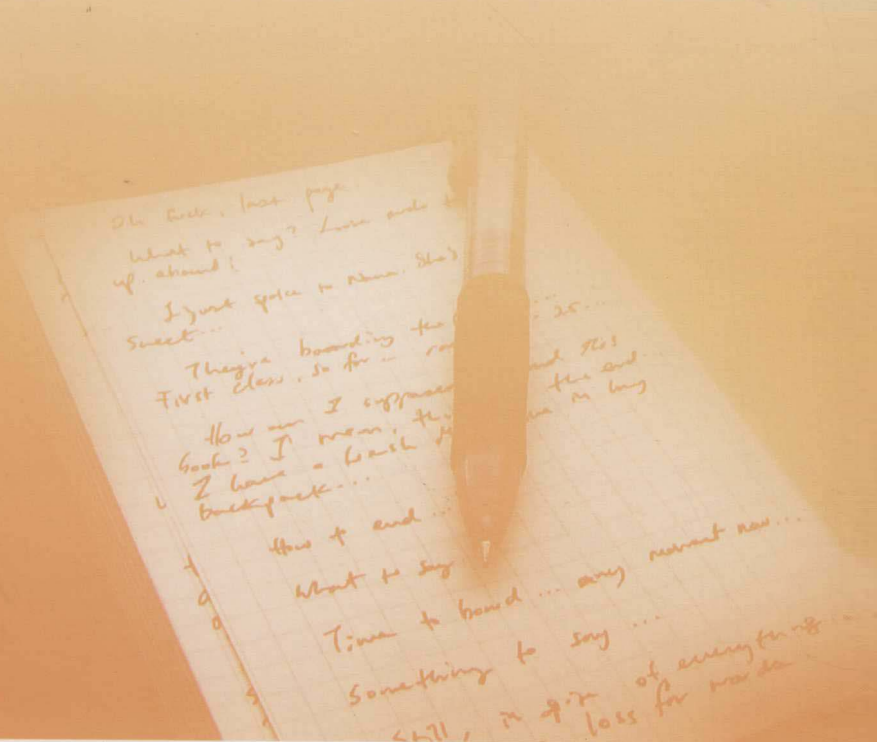 Oh fuck, last page.
What to say? Loose ends to
up, ahound;
I just spoke to Mama. She's
sweet...
They're boarding the 25...
First class, so far
How am I suppose end this
book? I mean, this the end.
I have a in my
backpack...
How to end...
What to say
Time to board... any moment now...
Something to say...
Still, in spite of everything...
loss for words